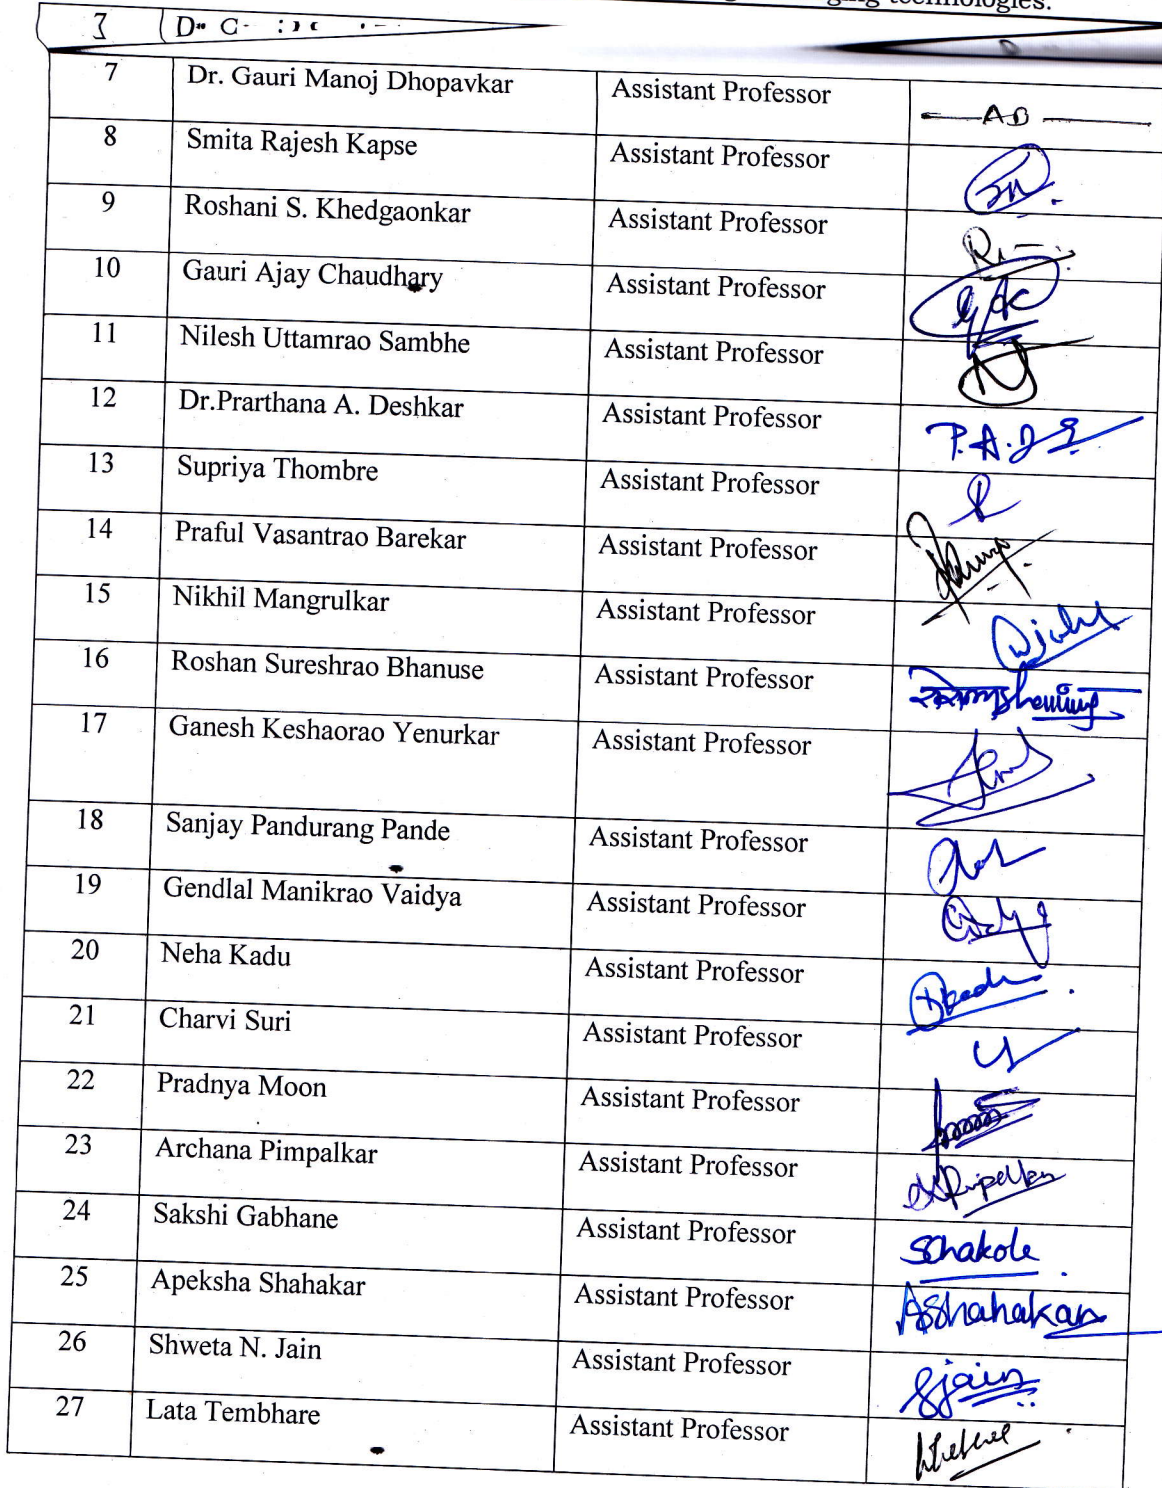 technologies.
7 Dr. Gauri Manoj Dhopavkar Assistant Professor AB
8 Smita Rajesh Kapse Assistant Professor
9 Roshani S. Khedgaonkar Assistant Professor
10 Gauri Ajay Chaudhary Assistant Professor
11 Nilesh Uttamrao Sambhe Assistant Professor
12 Dr.Prarthana A. Deshkar Assistant Professor
13 Supriya Thombre Assistant Professor
14 Praful Vasantrao Barekar Assistant Professor
15 Nikhil Mangrulkar Assistant Professor
16 Roshan Sureshrao Bhanuse Assistant Professor
17 Ganesh Keshaorao Yenurkar Assistant Professor
18 Sanjay Pandurang Pande Assistant Professor
19 Gendlal Manikrao Vaidya Assistant Professor
20 Neha Kadu Assistant Professor
21 Charvi Suri Assistant Professor
22 Pradnya Moon Assistant Professor
23 Archana Pimpalkar Assistant Professor
24 Sakshi Gabhane Assistant Professor Schakole
25 Apeksha Shahakar Assistant Professor AShahakar
26 Shweta N. Jain Assistant Professor Sjain
27 Lata Tembhare Assistant Professor